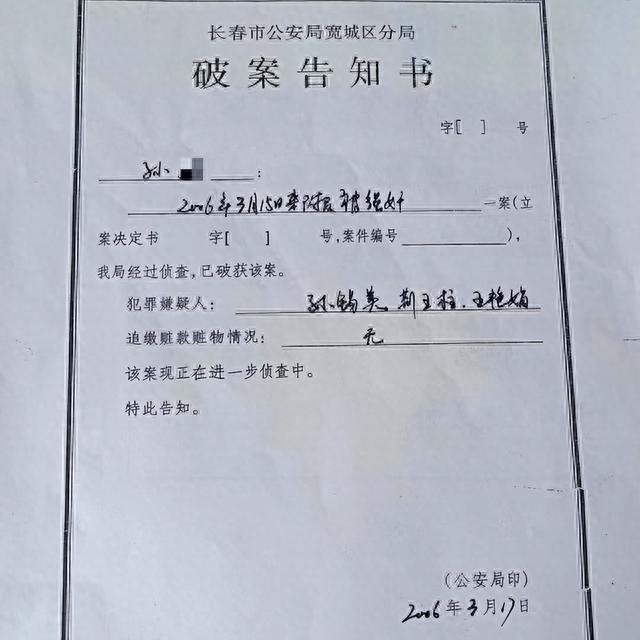 长春市公安局宽城区分局
破案告知书
字[ ] 号
孙 :
2006年3月15日 被强奸 一案(立
案决定书 字[ ] 号,案件编号 ),
我局经过侦查,已破获该案。
犯罪嫌疑人: 孙锡美 荆玉柱.王艳娟
追缴赃款赃物情况: 无
该案现正在进一步侦查中。
特此告知。
(公安局印)
2006年3月17日